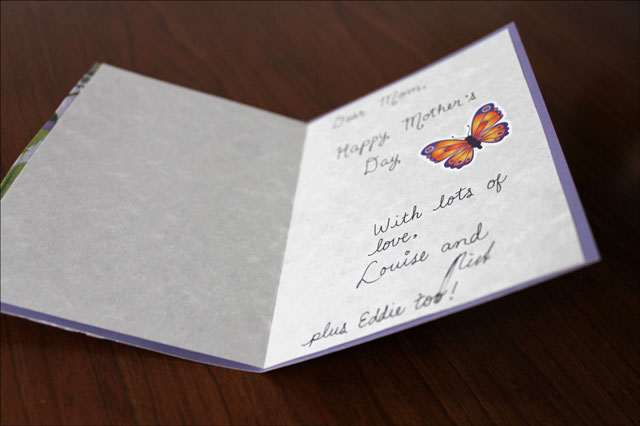 Dear Mom,
Happy Mother's
Day
With lots of
love.
Louise and
Nick
plus Eddie too!